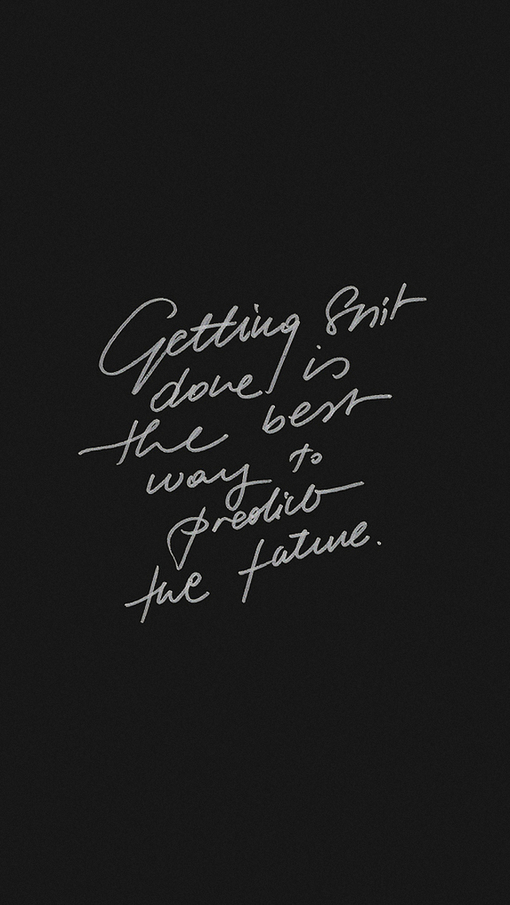 Getting Shit
done is
the best
way to
predict
the future.